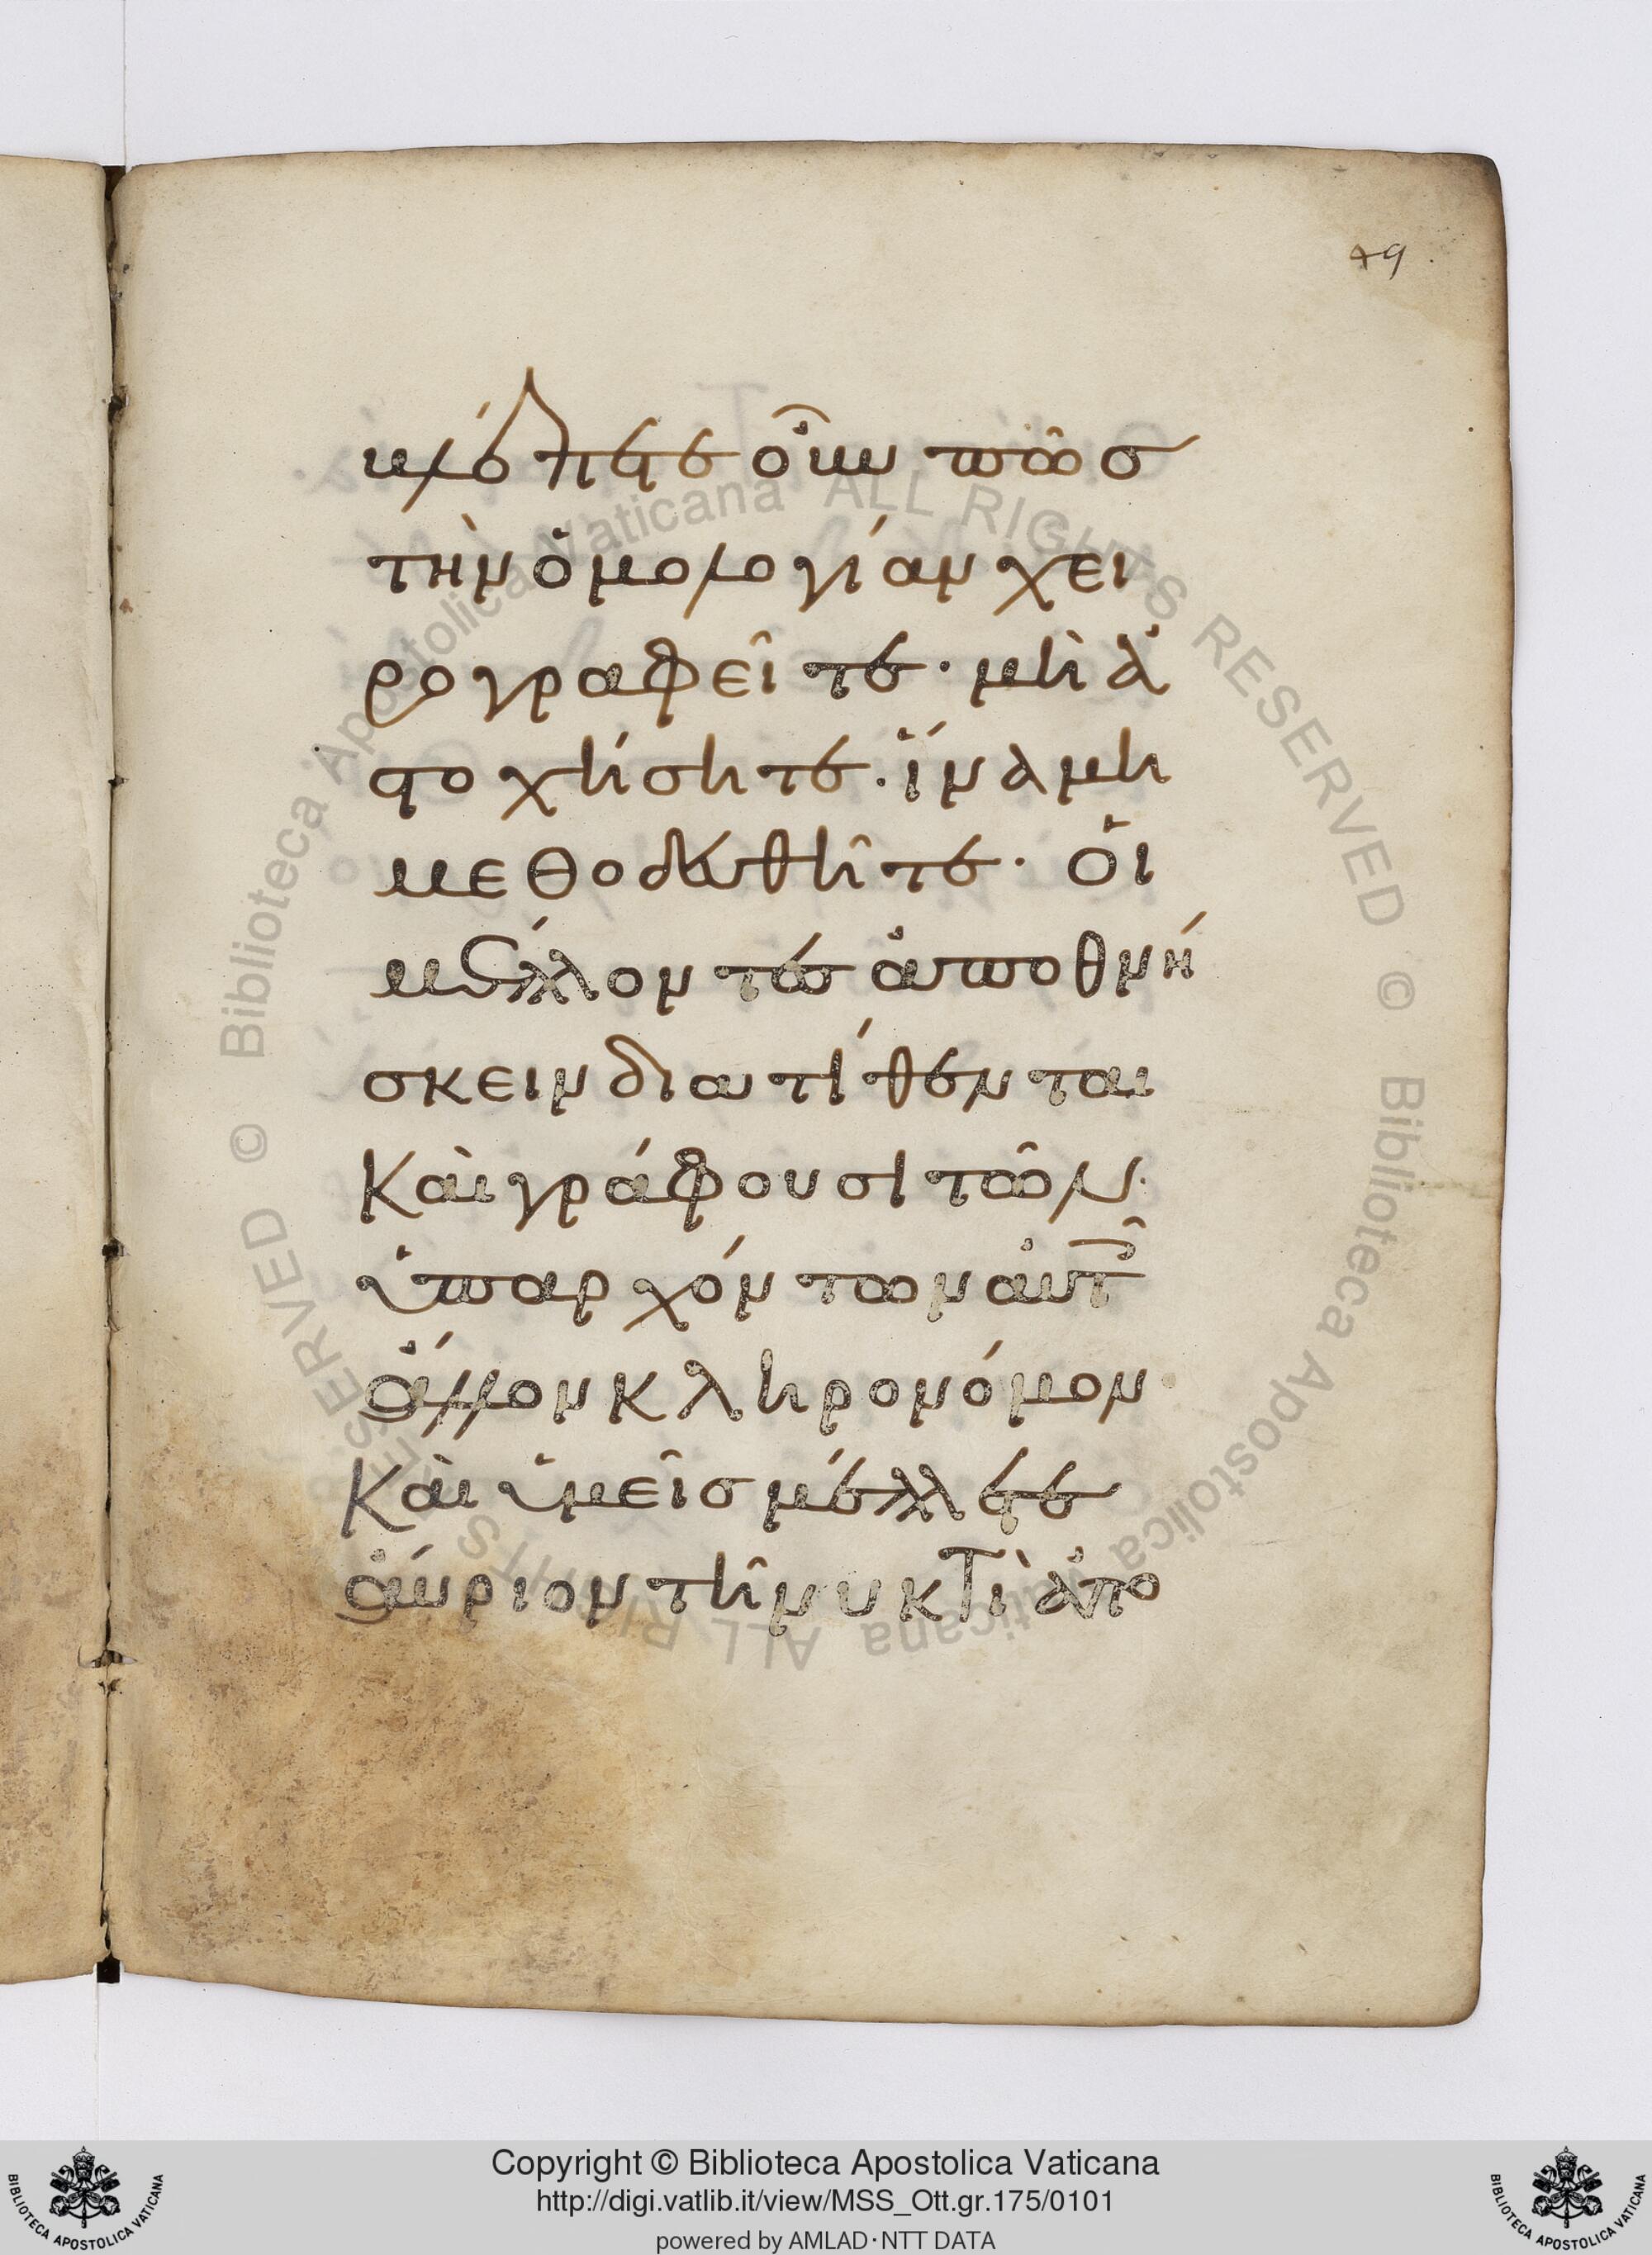 49
βλέπετε οὖν πῶς
τὴν ὁμολογίαν χει
ρογραφεῖτε· μὴ ἀ
στοχήσητε· ἵνα μὴ
μεθοδευθῆτε· οἱ
μέλλοντες ἀποθνή
σκειν διατίθενται
Καὶ γράφουσι τῶν
ὑπαρχόντων αὐτῶν
ἄλλον κληρονόμον
Καὶ ὑμεῖς μέλλετε
αὔριον τῆ νυκτὶ ἀπο
© Biblioteca Apostolica Vaticana ALL RIGHTS RESERVED © Biblioteca Apostolica Vaticana ALL RIGHTS RESERVED
Copyright © Biblioteca Apostolica Vaticana
http://digi.vatlib.it/view/MSS_Ott.gr.175/0101
powered by AMLAD·NTT DATA
BIBLIOTECA APOSTOLICA VATICANA
BIBLIOTECA APOSTOLICA VATICANA